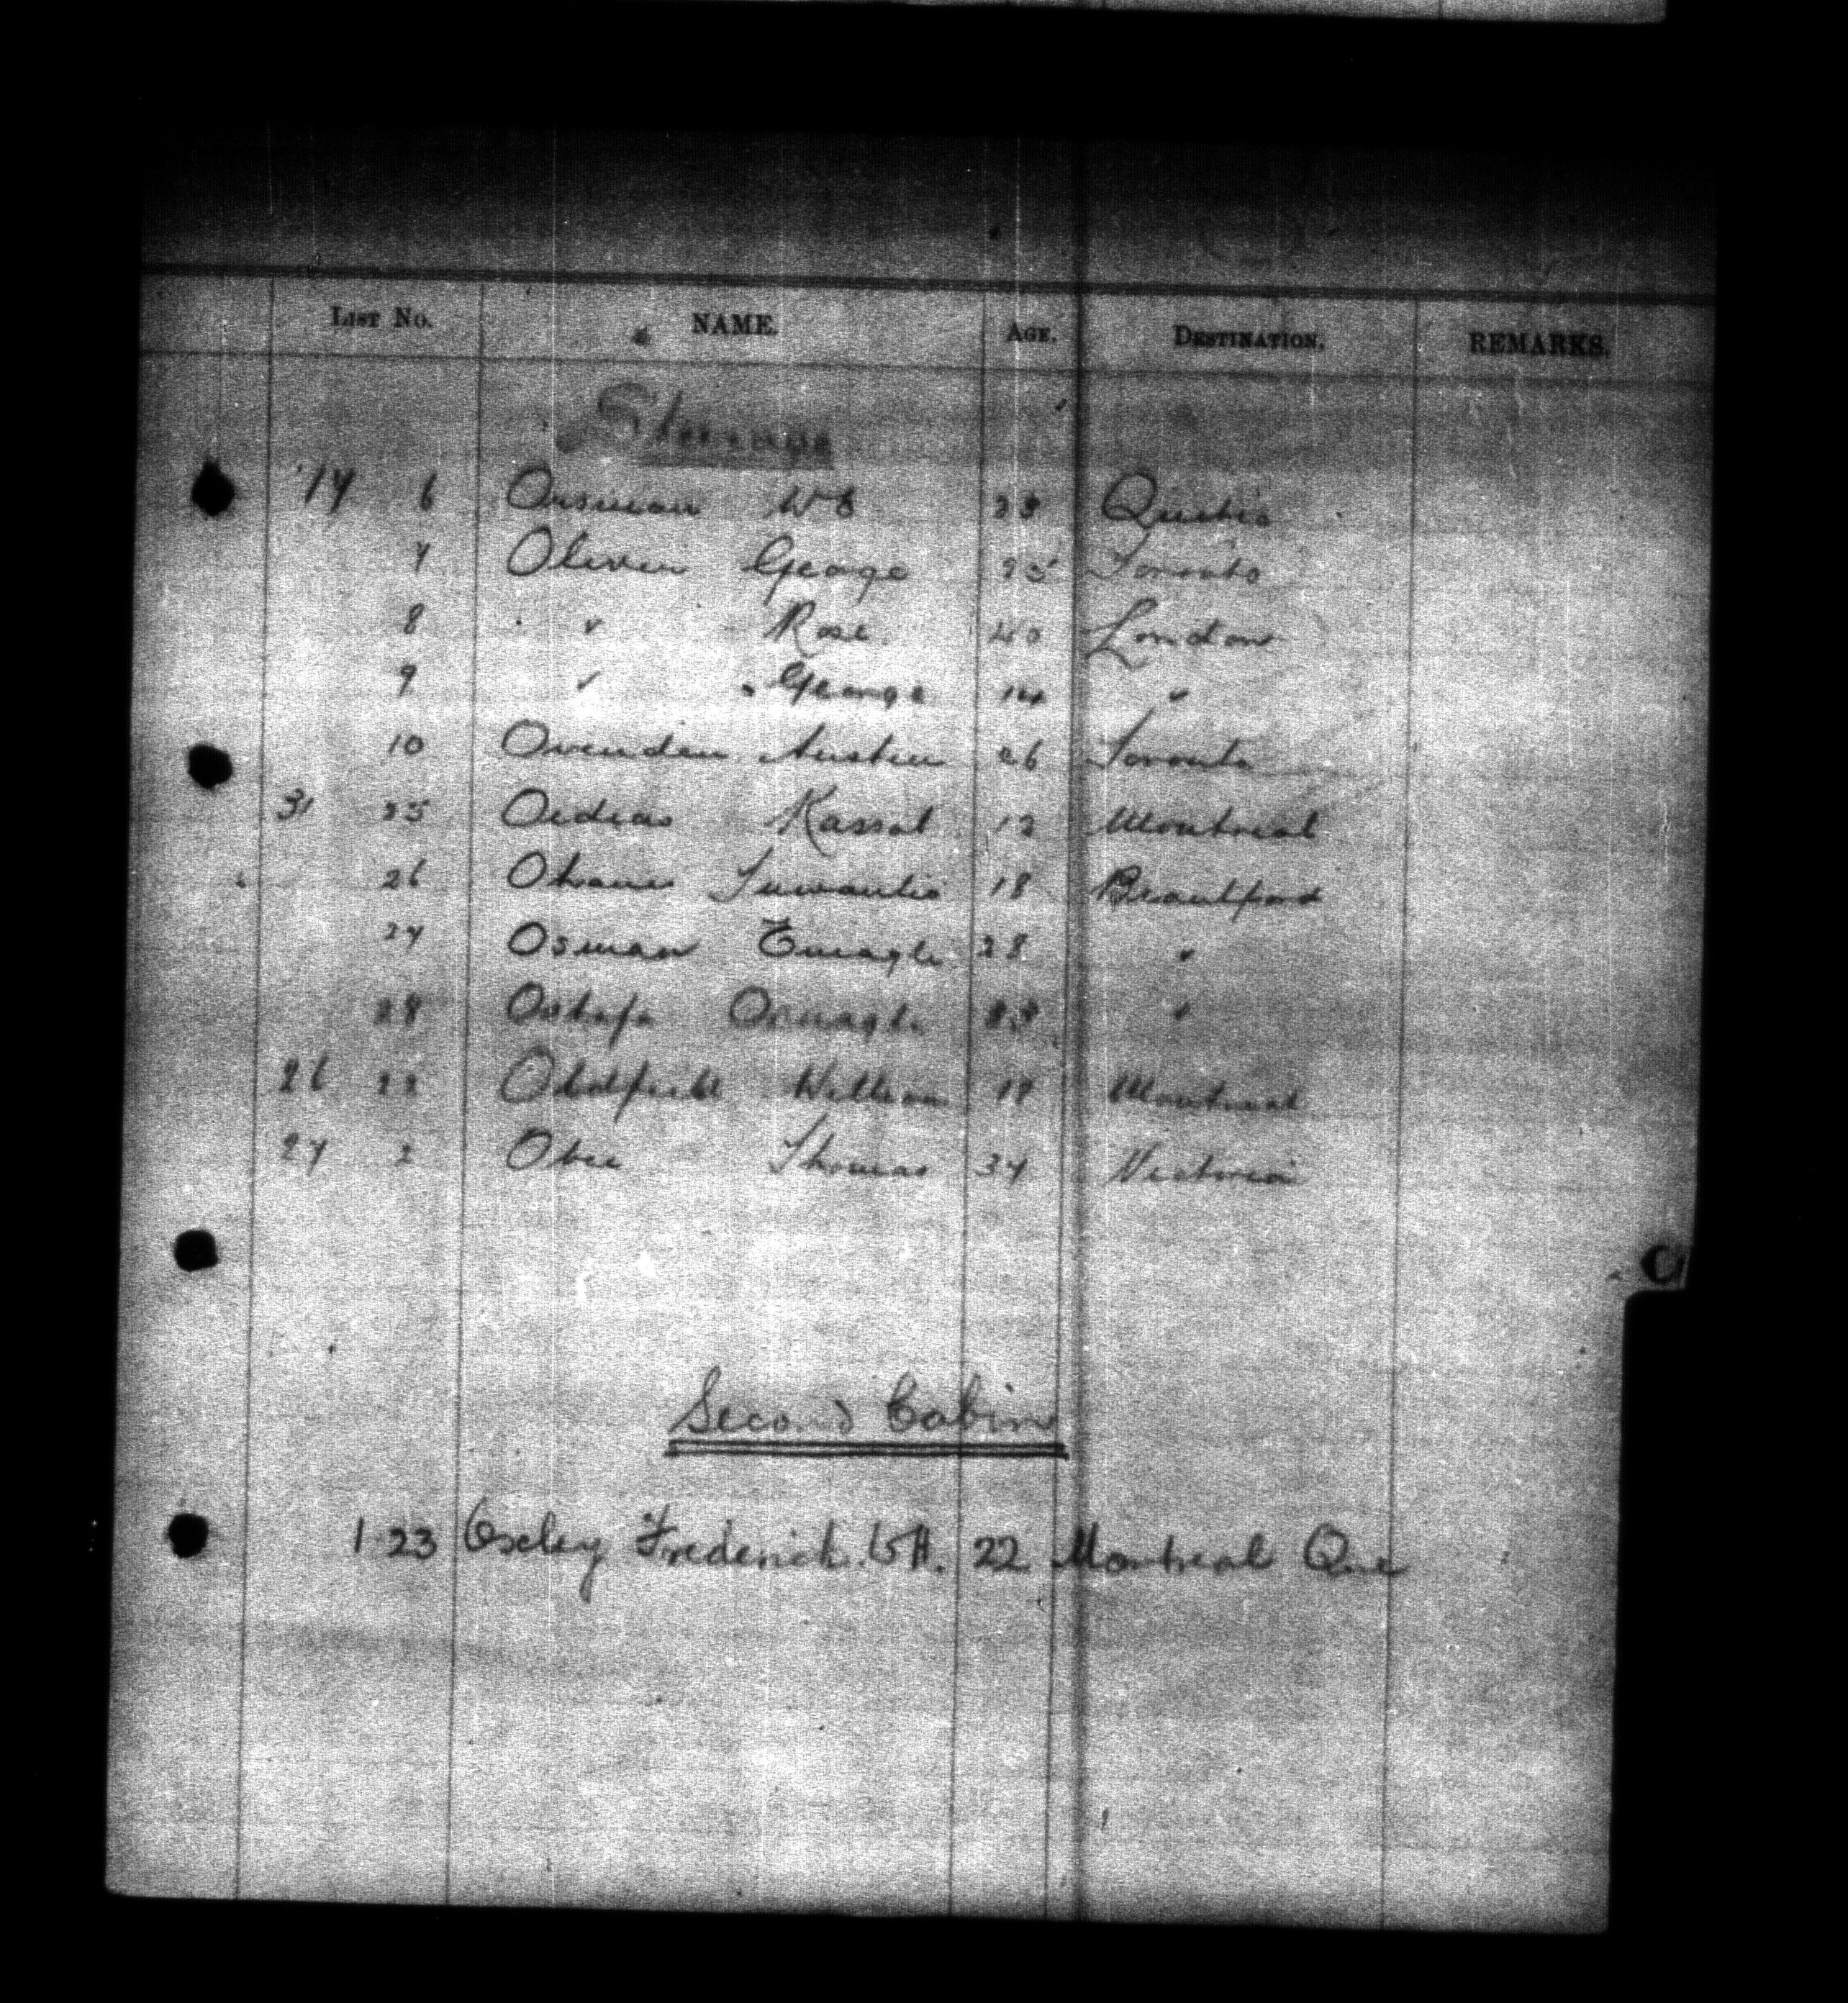 LIST No. NAME. AGE. DESTINATION. REMARKS.
Steerage
14 6 Orsman W 23 Quebec
7 Oliver George 25 Toronto
8 " Rose 40 London
9 " George 14 "
10 Ovenden Austin 26 Toronto
31 25 Kassab 12 Montreal
26 18 Brantford
27 Osman 28 "
28 "
26 22 William 18 Montreal
27 2 Obee Thomas 34 Victoria
Second Cabin
1-23 Oxley Frederick W H. 22 Montreal Que